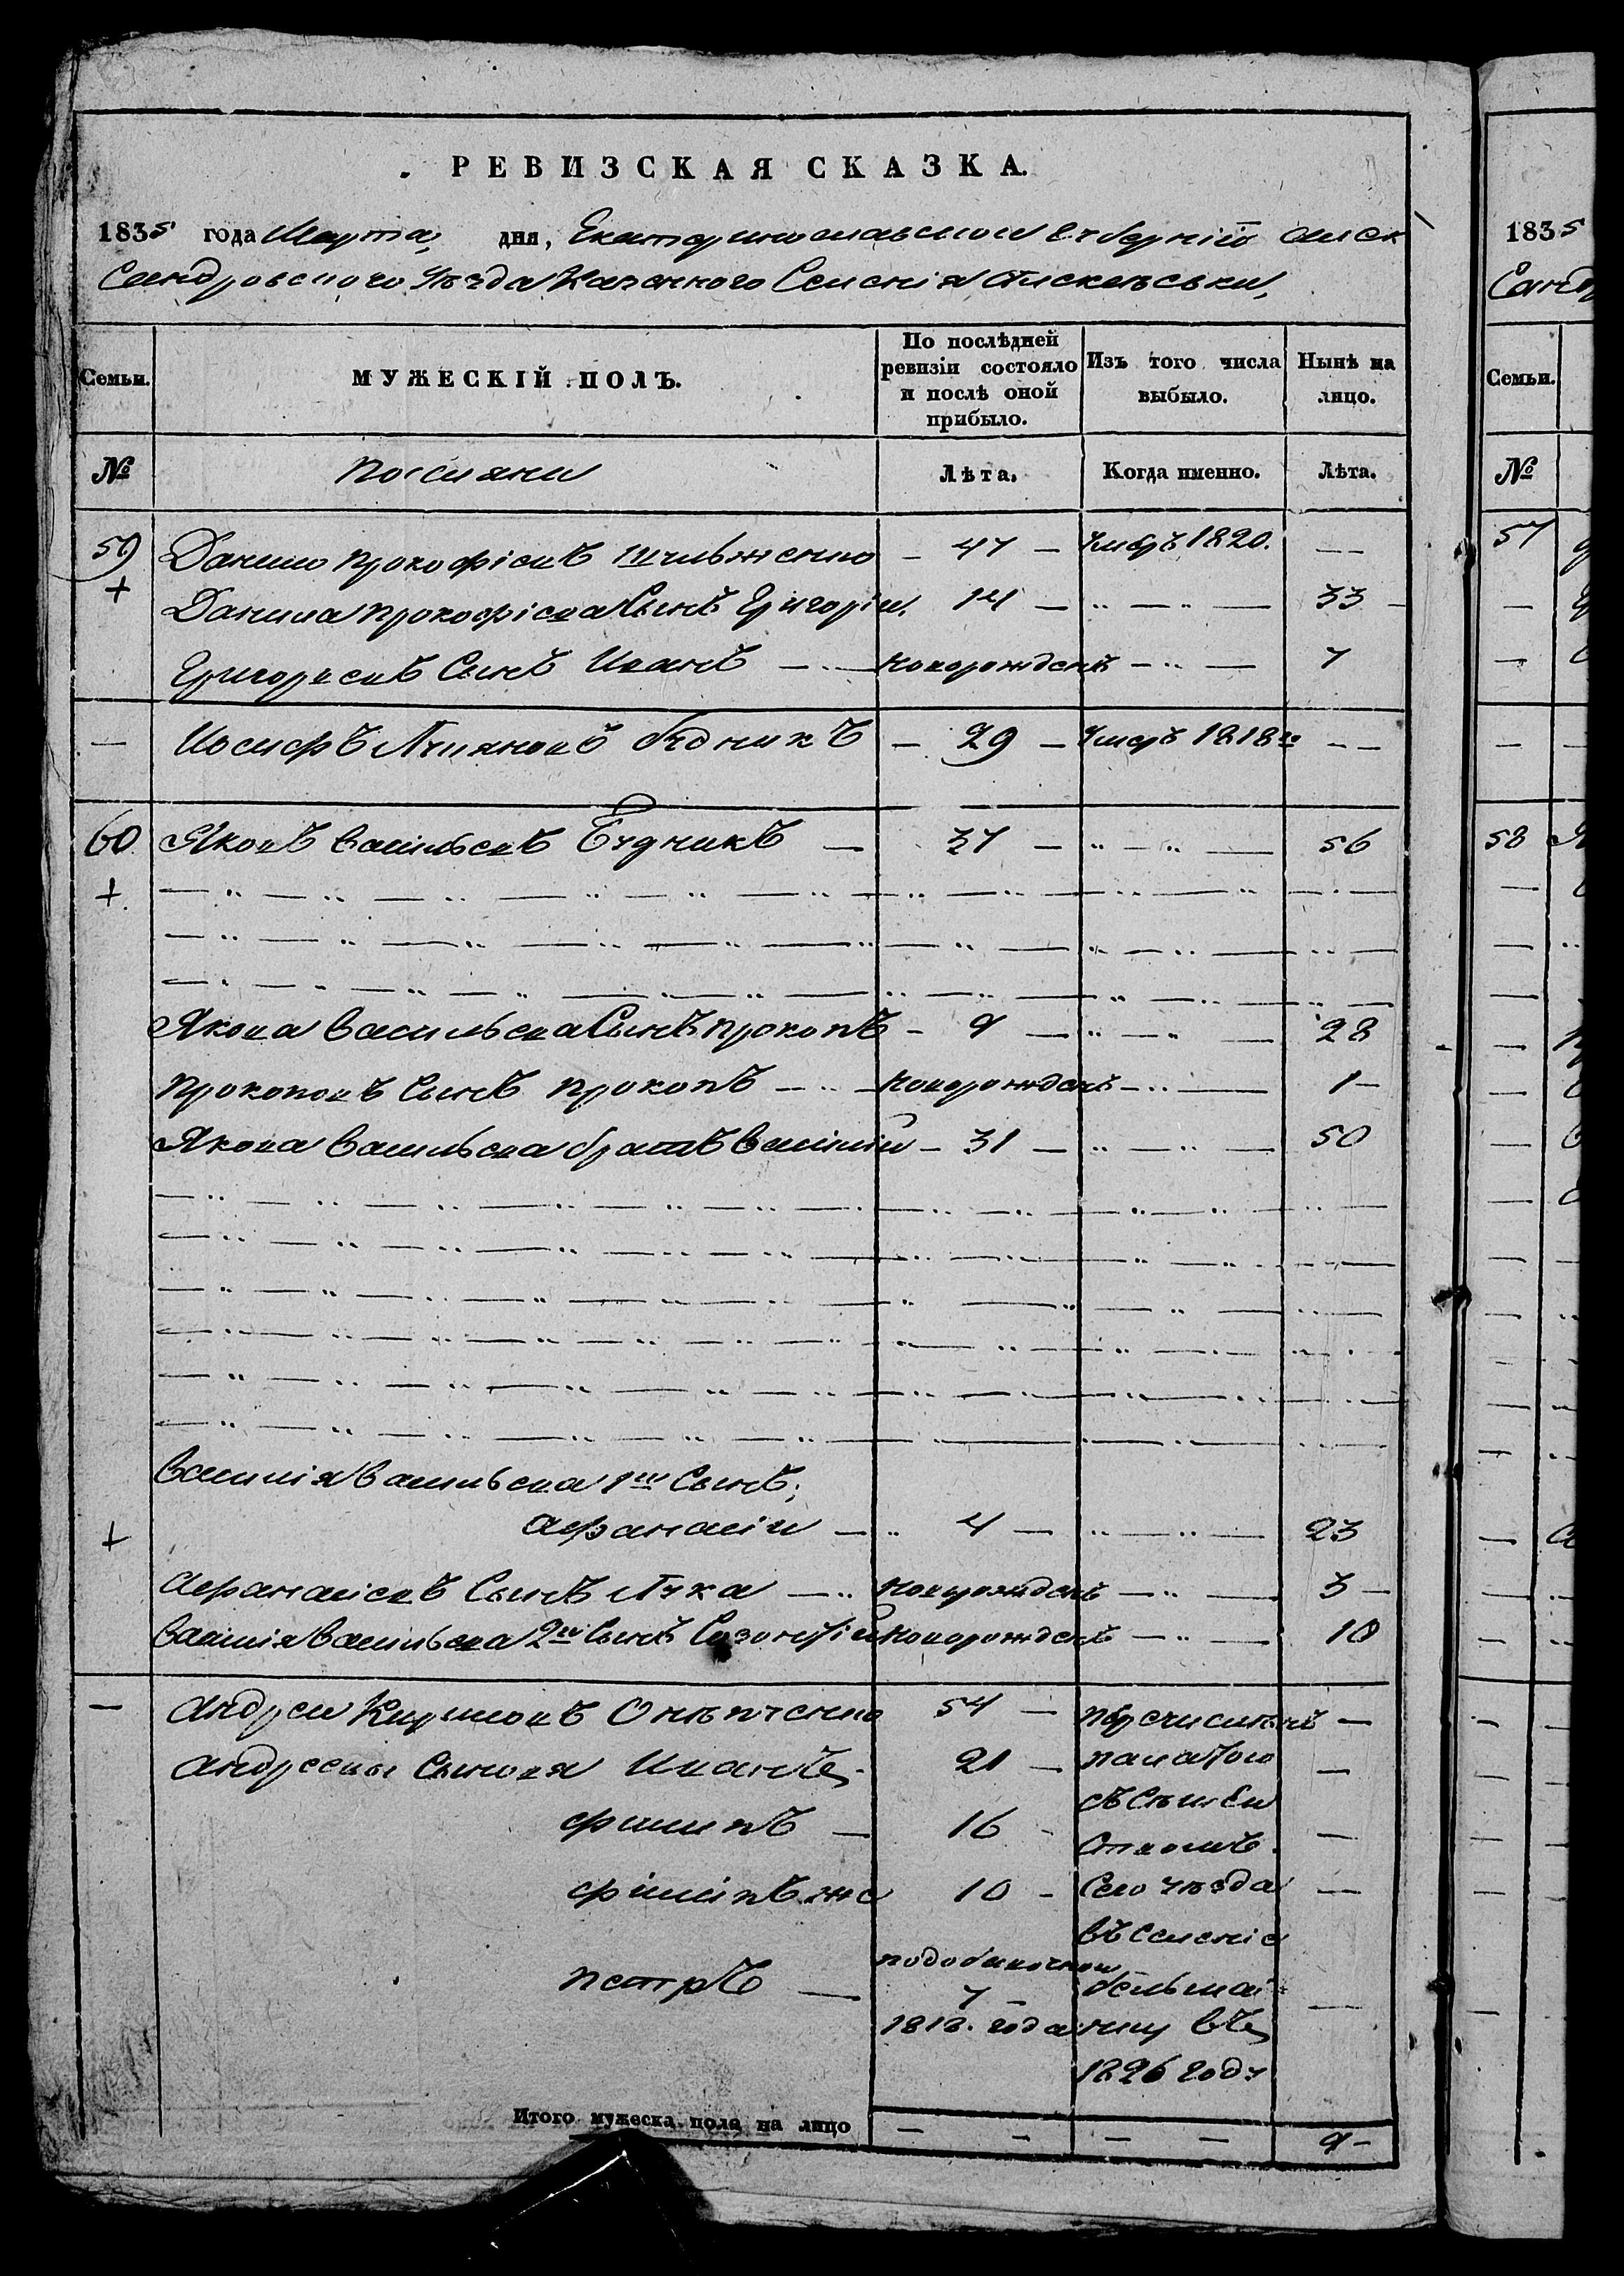 РЕВИЗСКАЯ СКАЗКА.
1835 года Марта, дня, Екатеринославской Губерніи Алек
сандровского Уѣзда Казенного Селенія
Семьи. МУЖЕСКІЙ ПОЛЪ. По послѣдней ревизіи состояло и послѣ оной прибыло. Изъ того числа выбыло. Нынѣ на лицо.
№ поселяни Лѣта. Когда именно. Лѣта.
59 Данило Прокофіевъ — 47 — умеръ 1820. — —
+ Данила Прокофіева Сынъ Григорій. 14 — „ — „ — 33 —
Григорьевъ Сынъ Иванъ — „ — новорожденъ — „ — 7
— Іосифъ Лукяновъ Будникъ — 29 — умеръ 1818го — —
60 Яковъ Васильевъ Будникъ — 37 — „ — „ — 56
+
Якова Васильева Сынъ Прокопъ — 9 — „ — „ — 28
Прокоповъ Сынъ Прокопъ — „ — новорожденъ — „ — 1 —
Якова Васильева братъ Василій — 31 — „ — „ — 50
Василія Васильева 1й Сынъ,
+ Афанасій — „ 4 — „ — „ — 23
Афанасіевъ Сынъ Лука — „ новорожденъ — „ — 3 —
Василія Васильева 2й Сынъ Созонтій новорожденъ — „ — 10
— Андрей Кириловъ 54 — перечисленъ —
Андреевы Сыновя Иванъ, 21 — палатою —
съ Семей
Филипъ — 16 — —
ством
Филипъ же 10 — Сего уѣзда —
въ Селеніе
Петръ — 7 —
1818. года въ
1826 году
Итого мужеска пола на лицо — — — — 9 —
1835
Санд
Семьи.
№
57
58